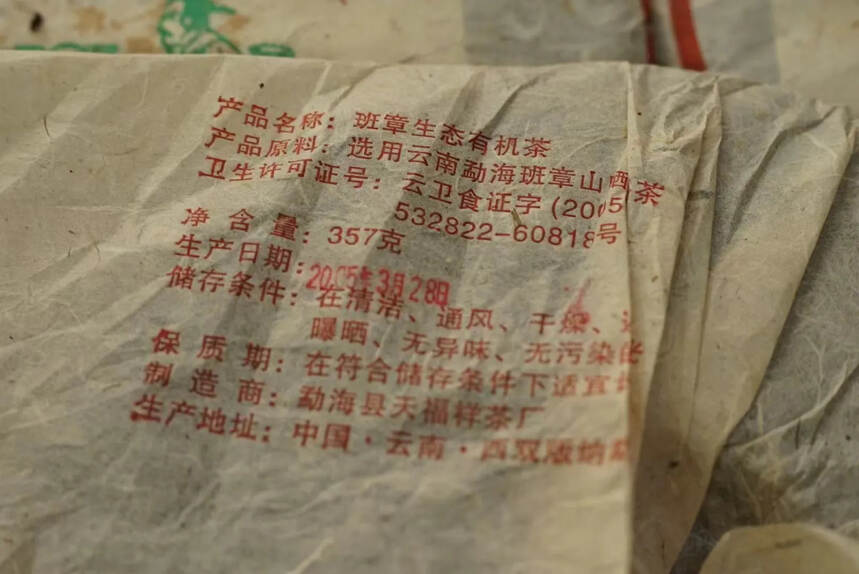 产品名称：班章生态有机茶
产品原料：选用云南勐海班章山西茶
卫生许可证号：云卫食证字(2005
532822-60818号
净 含 量：357克
生产日期：2005年3月28日
储存条件：在清洁、通风、干燥、
曝晒、无异味、无污染
保 质 期：在符合储存条件下适宜
制 造 商：勐海县天福祥茶厂
生产地址：中国·云南·西双版纳